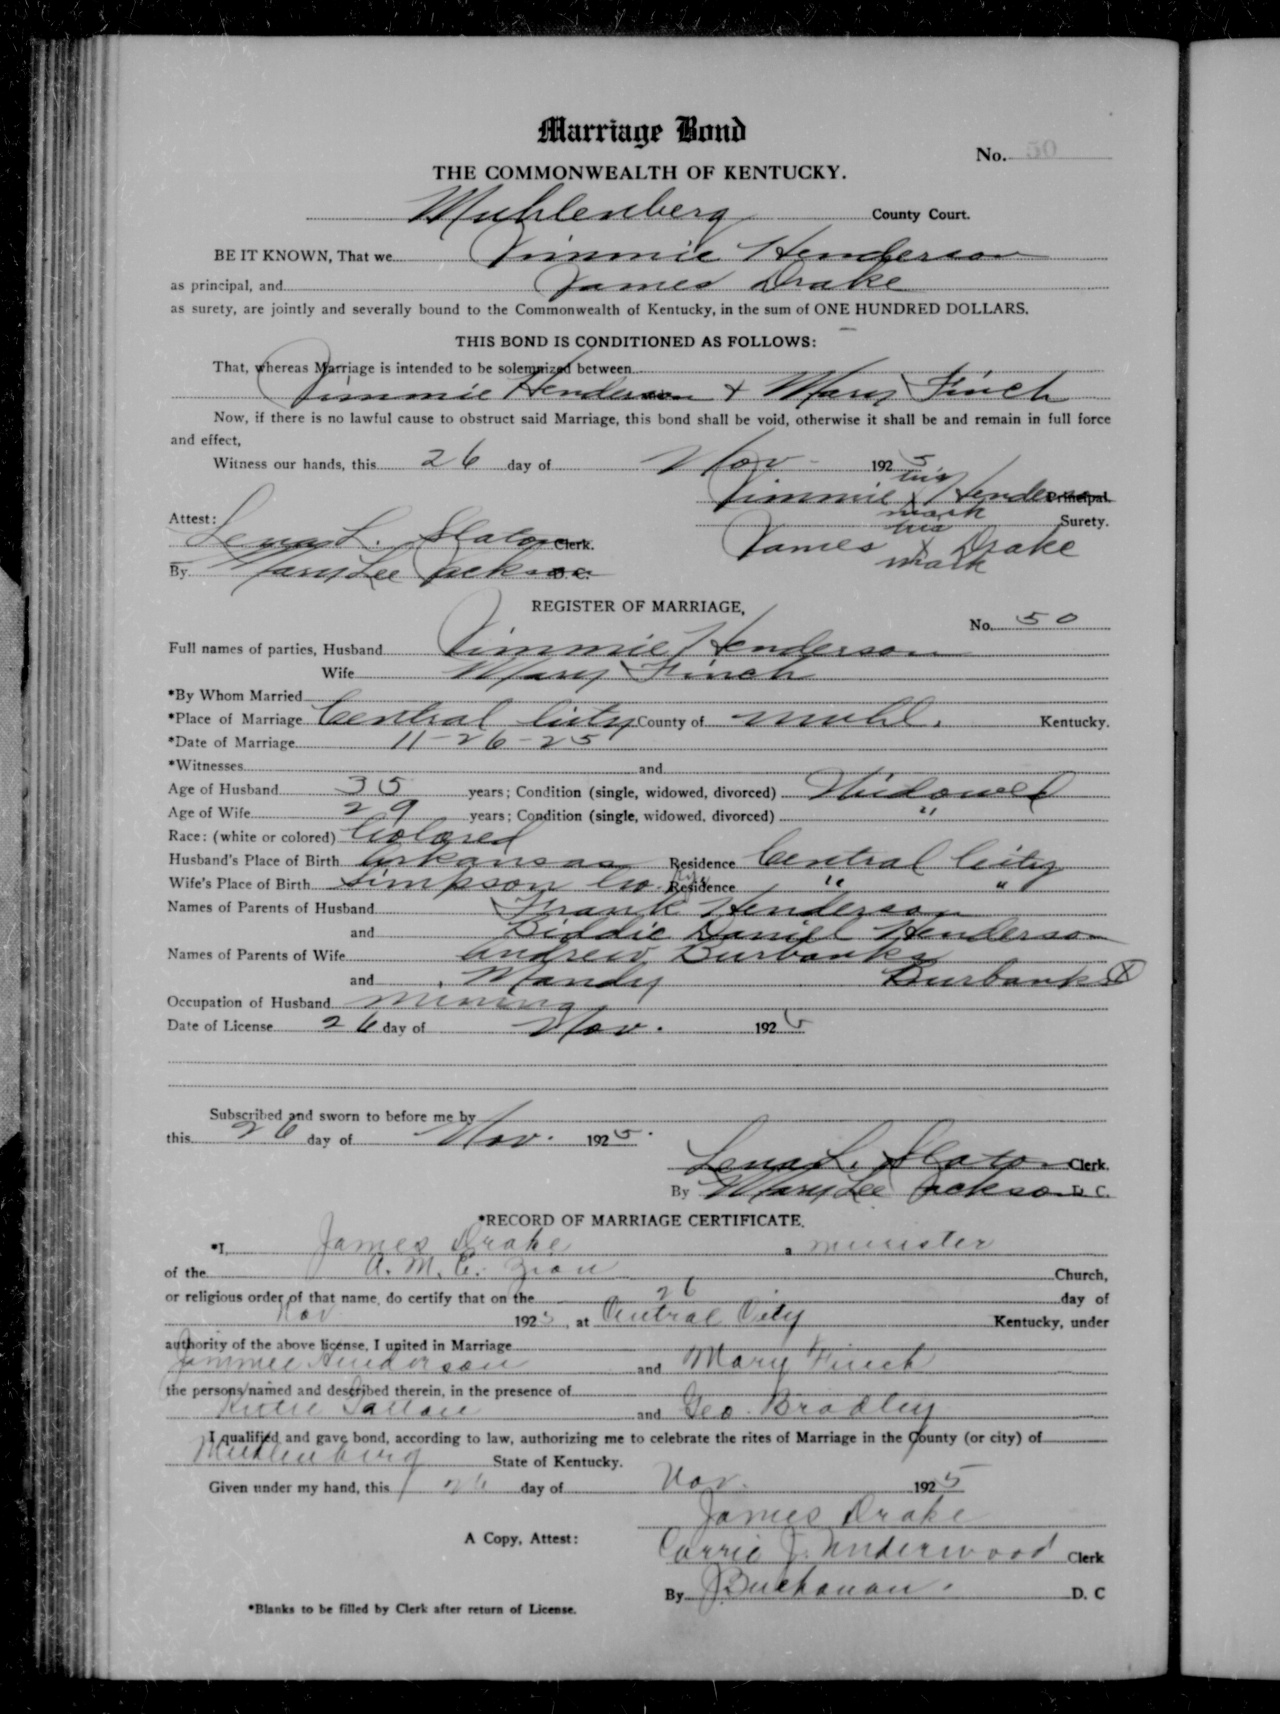 Marriage Bond
No. 50
THE COMMONWEALTH OF KENTUCKY.
Muhlenberg County Court.
BE IT KNOWN, That we Jimmie Henderson
as principal, and James Drake
as surety, are jointly and severally bound to the Commonwealth of Kentucky, in the sum of ONE HUNDRED DOLLARS.
THIS BOND IS CONDITIONED AS FOLLOWS:
That, whereas Marriage is intended to be solemnized between
Jimmie Henderson + Mary Finch
Now, if there is no lawful cause to obstruct said Marriage, this bond shall be void, otherwise it shall be and remain in full force
and effect,
Witness our hands, this 26 day of Nov - 1925
his
Jimmie x Henderson Principal.
mark
Attest: his Surety.
Lena L. Slaton Clerk. James x Drake
By Mary Lee Jackson D. C. mark
REGISTER OF MARRIAGE,
No. 50
Full names of parties, Husband Jimmie Henderson
Wife Mary Finch
*By Whom Married
*Place of Marriage Central City County of Muhl. Kentucky.
*Date of Marriage 11-26-25
*Witnesses and
Age of Husband 35 years; Condition (single, widowed, divorced) Widowed
Age of Wife 29 years; Condition (single, widowed, divorced) "
Race: (white or colored) Colored
Husband's Place of Birth Arkansas Residence Central City
Wife's Place of Birth Simpson Co. Ky Residence " "
Names of Parents of Husband Frank Henderson
and Biddie Daniel Henderson
Names of Parents of Wife Andrew Burbanks
and Mandy Burbanks X
Occupation of Husband mining
Date of License 26 day of Nov. 1925
Subscribed and sworn to before me by
this 26 day of Nov. 1925.
Lena L. Slaton Clerk.
By Mary Lee Jackson D. C.
*RECORD OF MARRIAGE CERTIFICATE.
*I, James Drake a minister
of the A. M. E. Zion Church,
or religious order of that name, do certify that on the 26 day of
Nov 1925, at Central City Kentucky, under
authority of the above license, I united in Marriage
Jimmie Henderson and Mary Finch
the persons named and described therein, in the presence of
and Geo. Bradley
I qualified and gave bond, according to law, authorizing me to celebrate the rites of Marriage in the County (or city) of
Muhlenburg State of Kentucky.
Given under my hand, this 26 day of Nov. 1925
James Drake
A Copy, Attest: Carrie J. Underwood Clerk
By J Buchanan. D. C
*Blanks to be filled by Clerk after return of License.